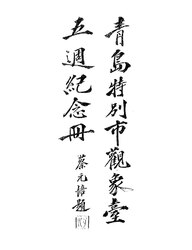 青島特別市觀象臺
五週紀念冊
蔡元培題